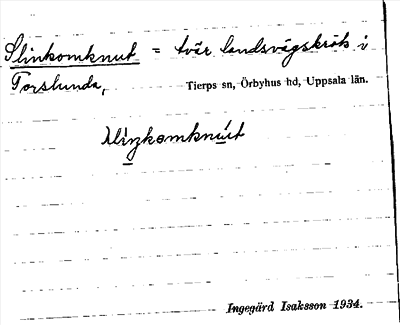 Slinkomknut = tvär landsvägskrök i
Torslunda, Tierps sn, Örbyhus hd, Uppsala län.
Ingegärd Isaksson 1934.